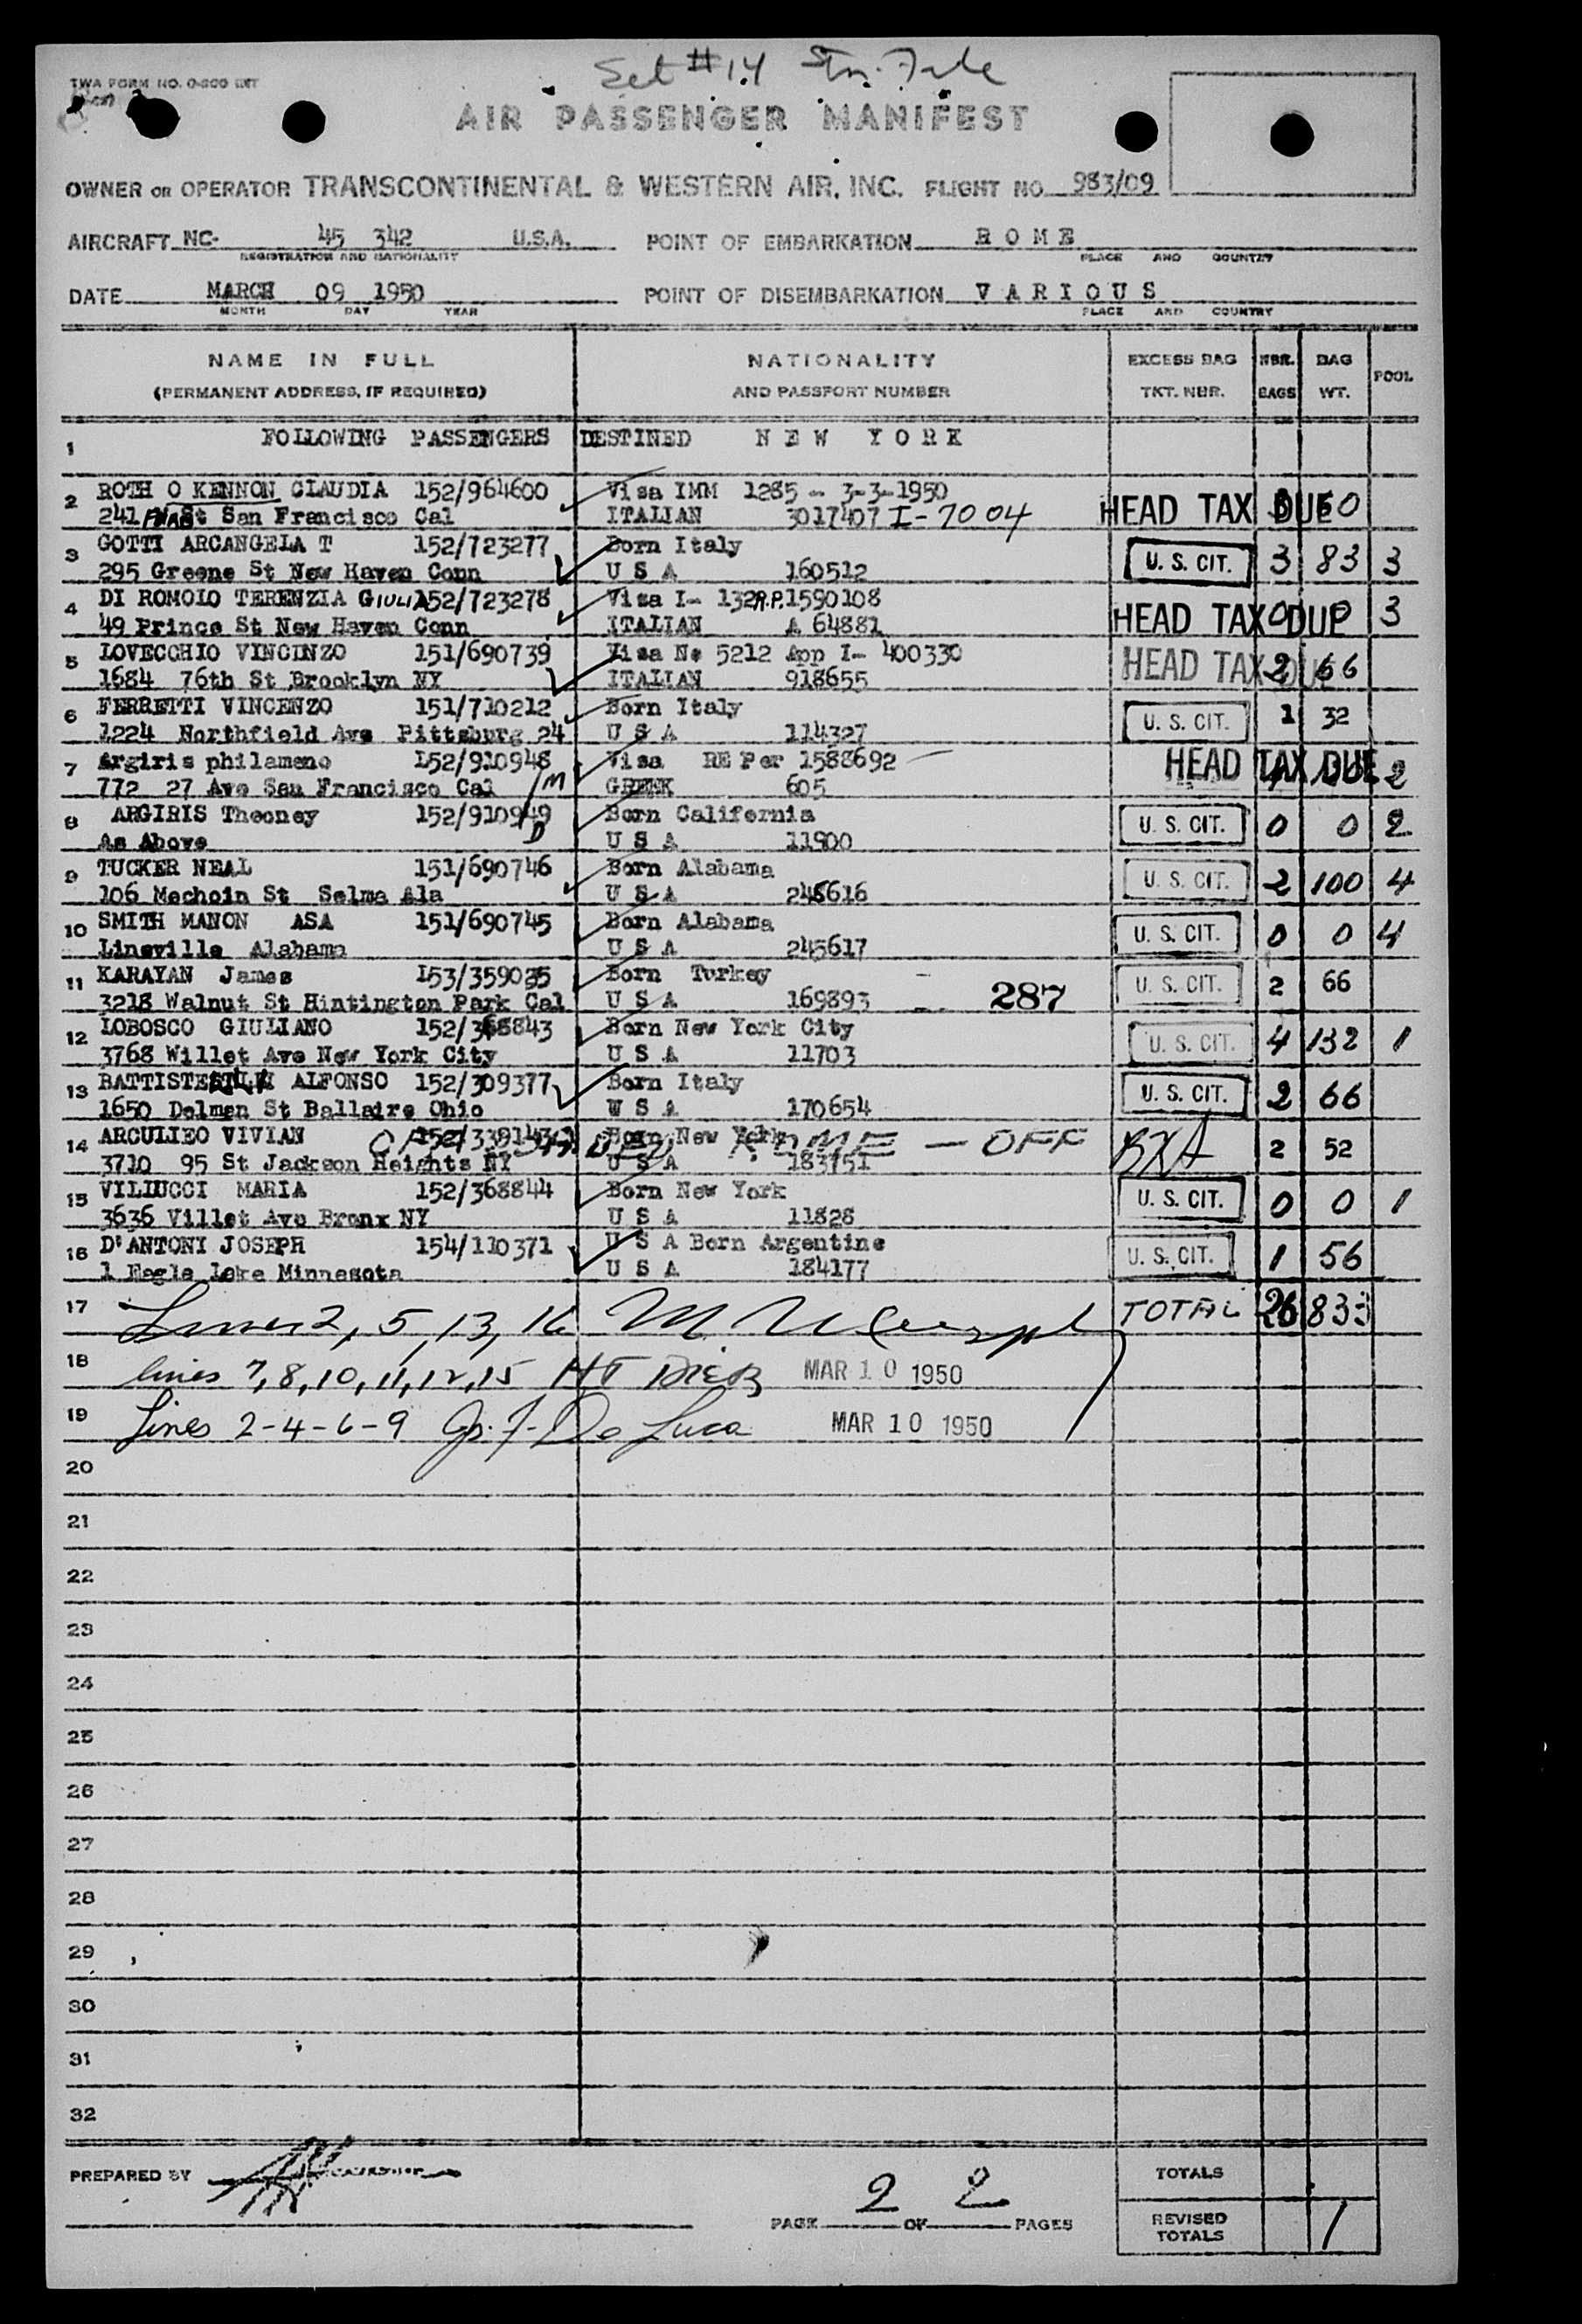 Set #14
TWA FORM NO. O-800 EXT
AIR PASSENGER MANIFEST
OWNER OR OPERATOR TRANSCONTINENTAL & WESTERN AIR, INC. FLIGHT NO 983/09
AIRCRAFT NC- 45 342 U.S.A. POINT OF EMBARKATION R O M E
REGISTRATION AND NATIONALITY PLACE AND COUNTRY
DATE MARCH 09 1950 POINT OF DISEMBARKATION V A R I O U S
MONTH DAY YEAR PLACE AND COUNTRY
NAME IN FULL NATIONALITY EXCESS BAG NBR. BAG POOL
(PERMANENT ADDRESS, IF REQUIRED) AND PASSPORT NUMBER TKT. NBR. BAGS WT.
1 FOLLOWING PASSENGERS DESTINED N E W Y O R K
2 ROTH O KENNON CLAUDIA 152/964600 Visa IMM 1285 - 3-3-1950 HEAD TAX DUE
241 St San Francisco Cal ITALIAN 3017407 I-7004
3 GOTTI ARCANGELA T 152/723277 Born Italy U. S. CIT. 3 83 3
295 Greene St New Haven Conn U S A 160512
4 DI ROMOLO TERENZIA GIULIA 152/723278 Visa I- 132 R.P. 1590108 HEAD TAX DUE 0 0 3
49 Prince St New Haven Conn ITALIAN A 64881
5 LOVECCHIO VINCINZO 151/690739 Visa No 5212 App I- 400330 HEAD TAX DUE 2 66
1684 76th St Brooklyn NY ITALIAN 918655
6 FERRETTI VINCENZO 151/710212 Born Italy U. S. CIT. 1 32
1224 Northfield Ave Pittsburg 24 U S A 114327
7 Argiris philameno 152/910948 Visa RE Per 1588692 HEAD TAX DUE 2
772 27 Ave San Francisco Cal M GREEK 605
8 ARGIRIS Theoney 152/910949 Born California U. S. CIT. 0 0 2
As Above D U S A 11900
9 TUCKER NEAL 151/690746 Born Alabama U. S. CIT. 2 100 4
106 Mechoin St Selma Ala U S A 245616
10 SMITH MANON ASA 151/690745 Born Alabama U. S. CIT. 0 0 4
Lineville Alabama U S A 245617
11 KARAYAN James 153/359035 Born Turkey U. S. CIT. 2 66
3218 Walnut St Hintington Park Cal U S A 169893 287
12 LOBOSCO GIULIANO 152/368843 Born New York City U. S. CIT. 4 132 1
3768 Willet Ave New York City U S A 11703
13 ALFONSO 152/309377 Born Italy U. S. CIT. 2 66
1650 Delmen St Ballaire Ohio U S A 170654
14 ARCULIEO VIVIAN Born New York ROME - OFF 2 52
3710 95 St Jackson Heights NY U S A 183751
15 VILIUCCI MARIA 152/368844 Born New York U. S. CIT. 0 0 1
3636 Villet Ave Bronx NY U S A 11828
16 D'ANTONI JOSEPH 154/110371 U S A Born Argentine U. S. CIT. 1 56
1 Eagle Lake Minnesota U S A 184177
17 Lines 2, 5, 13, 16 TOTAL 26 833
18 lines 7, 8, 10, 11, 12, 15 MAR 10 1950
19 Lines 2-4-6-9 De Luca MAR 10 1950
20
21
22
23
24
25
26
27
28
29
30
31
32
PREPARED BY TOTALS
PAGE 2 OF 2 PAGES REVISED TOTALS